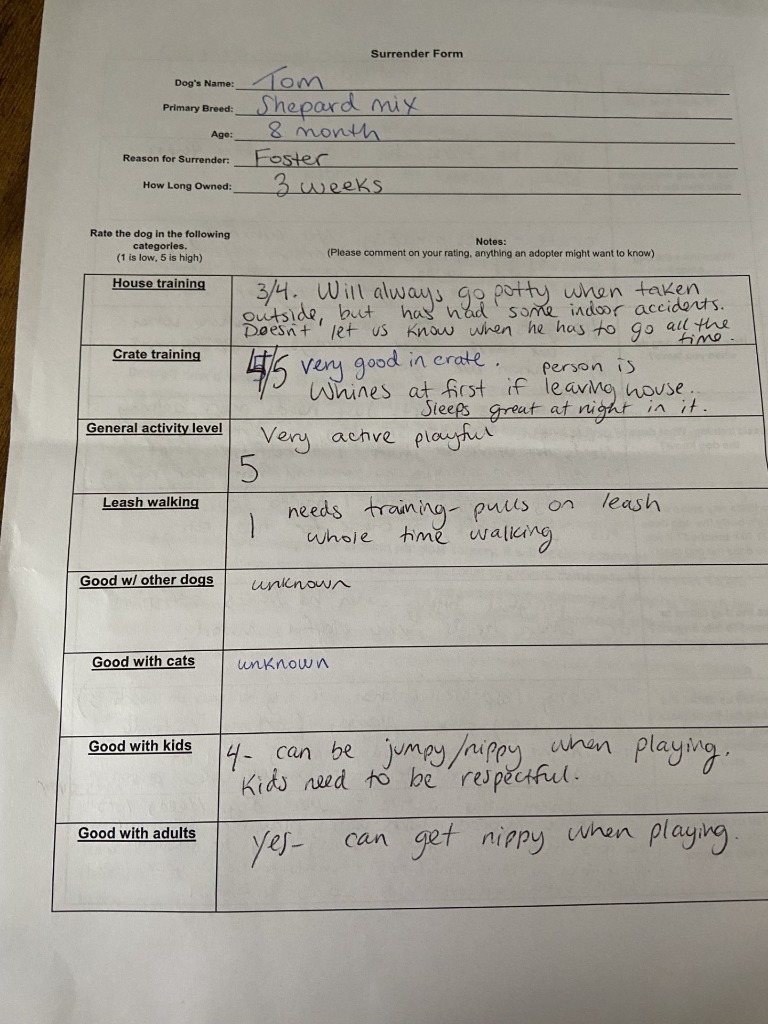 Surrender Form
Dog's Name: Tom
Primary Breed: Shepard mix
Age: 8 month
Reason for Surrender: Foster
How Long Owned: 3 weeks
Rate the dog in the following
categories.
(1 is low, 5 is high)
Notes:
(Please comment on your rating, anything an adopter might want to know)
House training
3/4. Will always go potty when taken
outside, but has had some indoor accidents.
Doesn't let us know when he has to go all the
time.
Crate training
4/5 very good in crate. person is
Whines at first if leaving house.
Sleeps great at night in it.
General activity level
Very active playful
5
Leash walking
1 needs training- pulls on leash
whole time walking
Good w/ other dogs
unknown
Good with cats
unknown
Good with kids
4- can be jumpy/nippy when playing.
Kids need to be respectful.
Good with adults
yes- can get nippy when playing.